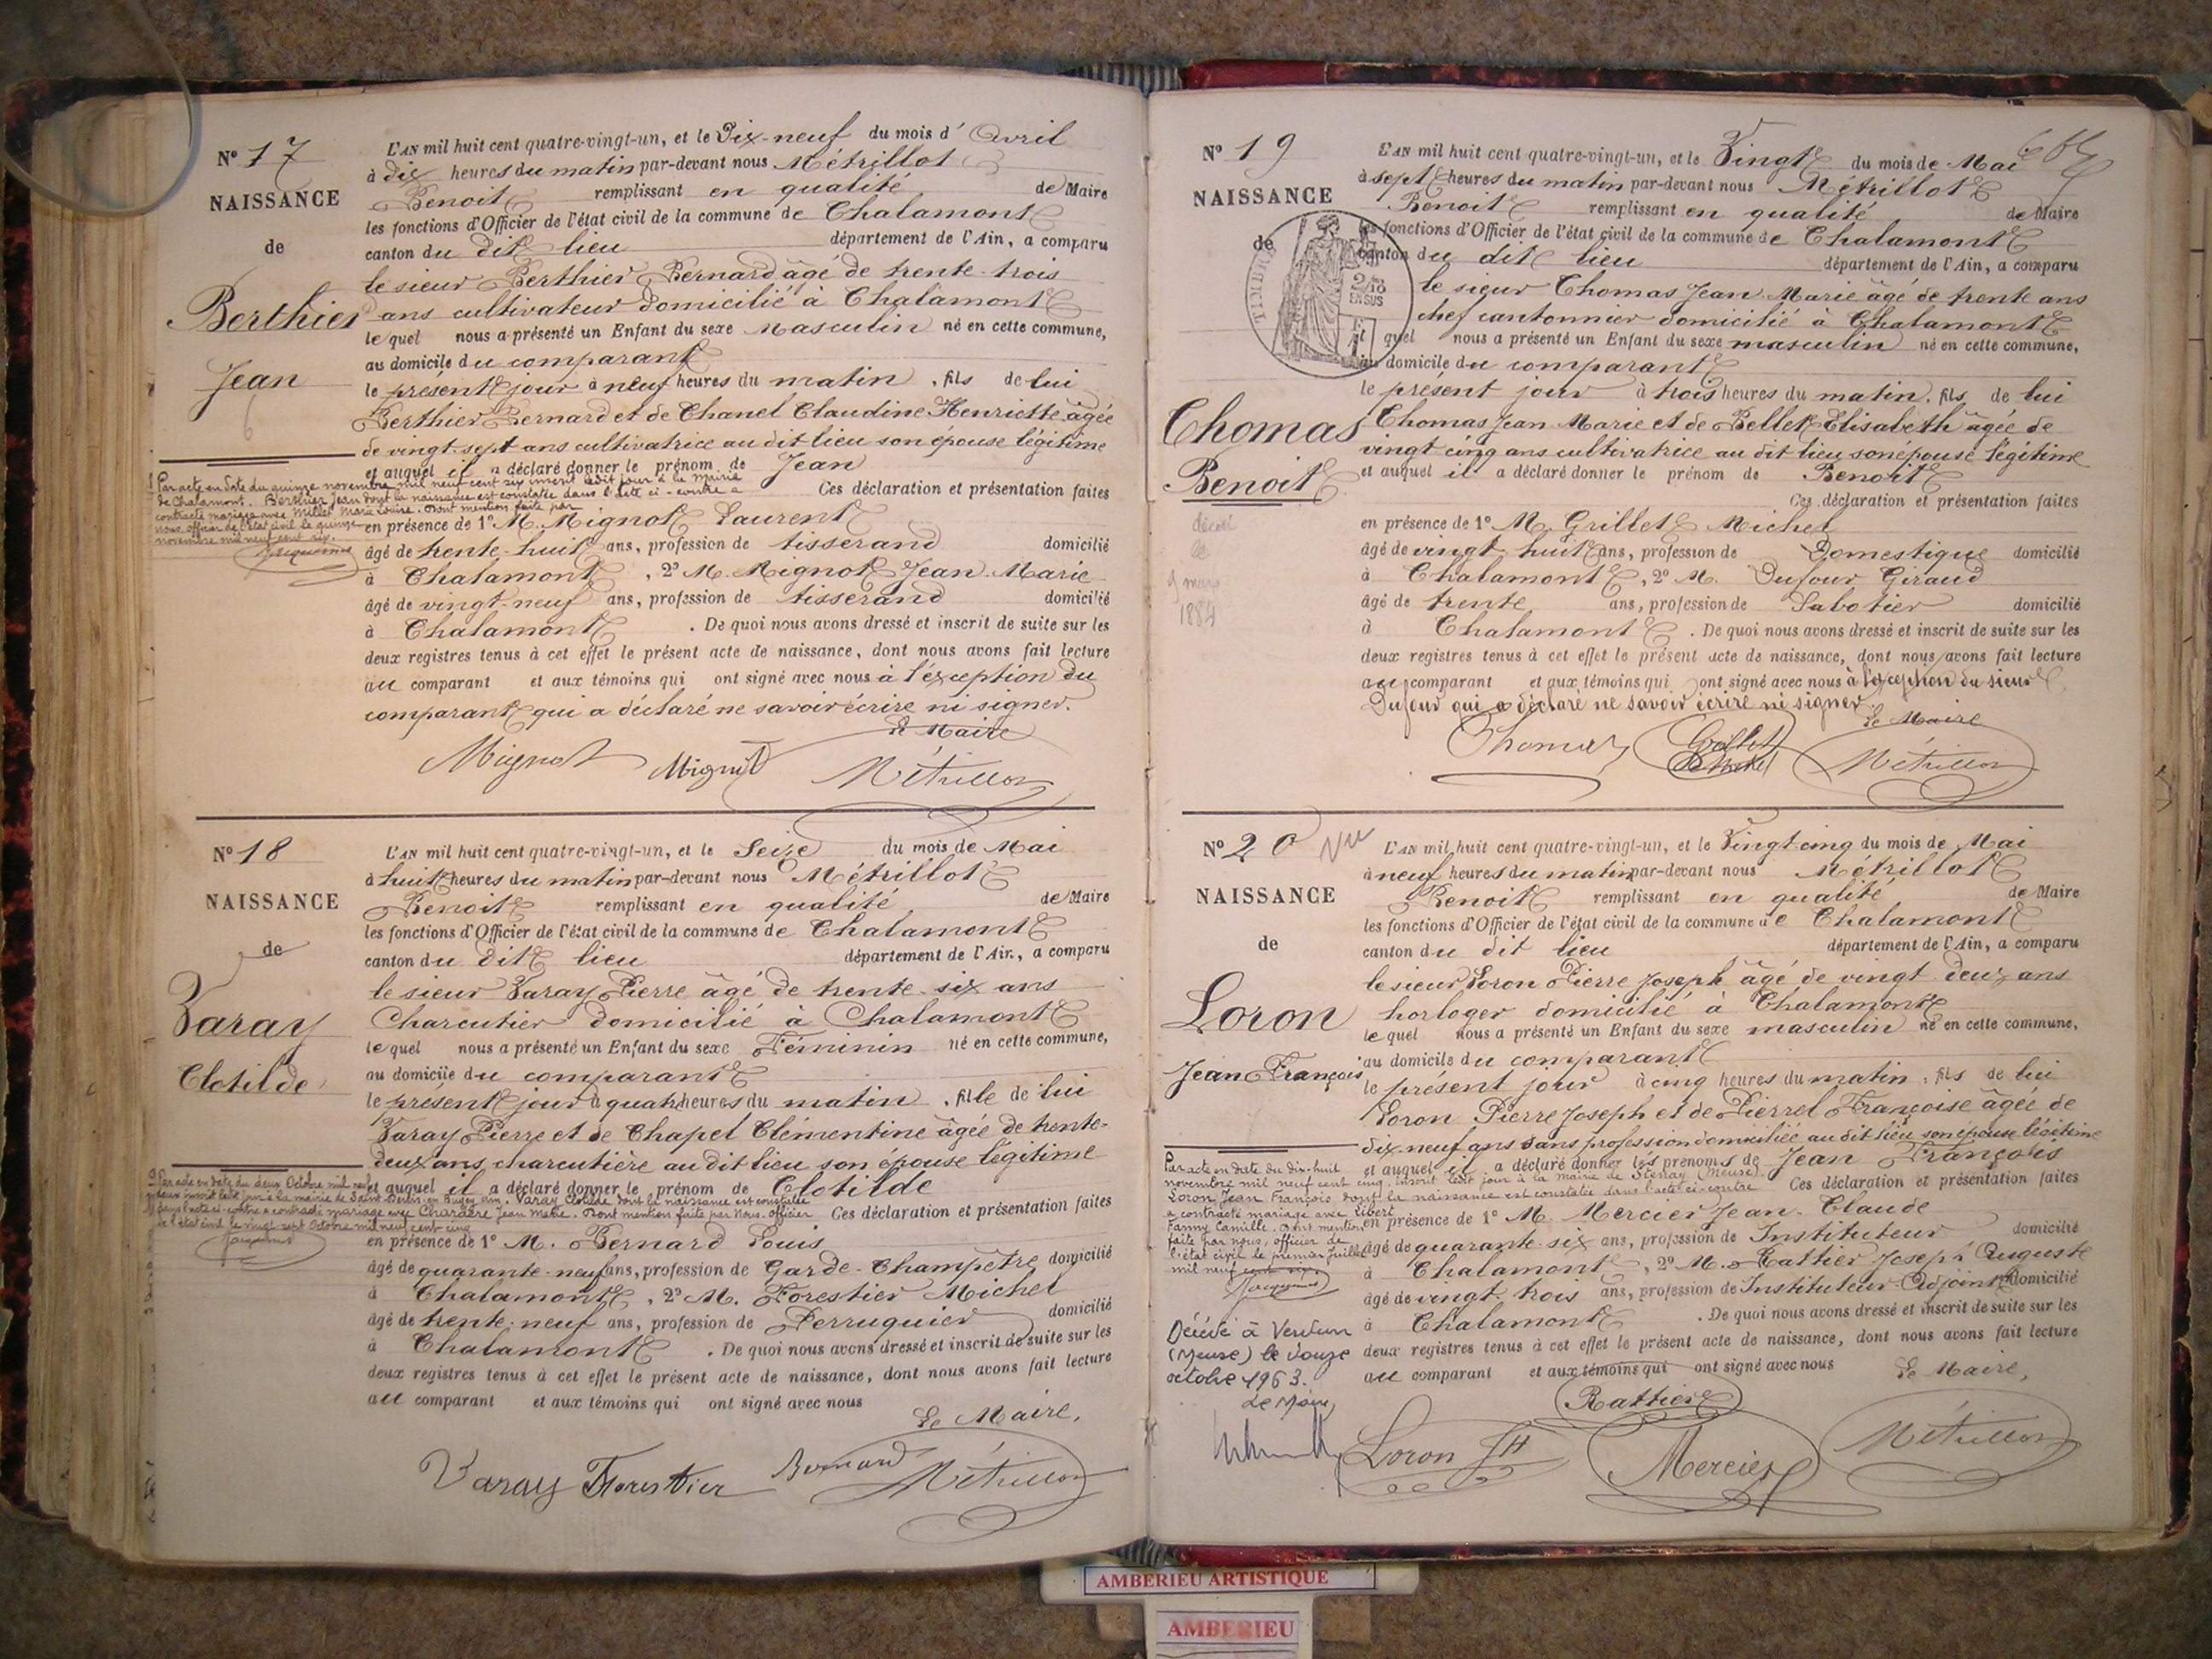 N° 17
NAISSANCE
de
Berthier
Jean
L'AN mil huit cent quatre-vingt-un, et le Dix-neuf du mois d'Avril
à dix heures du matin par-devant nous Métrillot
Benoit remplissant en qualité de Maire
les fonctions d'Officier de l'état civil de la commune de Chalamont
canton du dit lieu département de l'Ain, a comparu
le sieur Berthier Bernard âgé de trente-trois
ans cultivateur domicilié à Chalamont
le quel nous a présenté un Enfant du sexe Masculin né en cette commune,
au domicile du comparant
le présent jour à neuf heures du matin, fils de lui
Berthier Bernard et de Chanel Claudine Henriette âgée
de vingt-sept ans cultivatrice au dit lieu son épouse légitime
et auquel il a déclaré donner le prénom de Jean
Ces déclaration et présentation faites
Par acte en date du quinze novembre mil neuf cent six inscrit ledit jour à la Mairie
de Chalamont. Berthier Jean dont la naissance est constatée dans l'acte ci-contre a
contracté mariage avec Millet Marie Louise. Dont mention faite par
nous officier de l'état civil le quinze
novembre mil neuf cent six.
Jacquemin
en présence de 1° M. Mignot Laurent
âgé de trente-huit ans, profession de tisserand domicilié
à Chalamont, 2° M. Mignot Jean-Marie
âgé de vingt-neuf ans, profession de tisserand domicilié
à Chalamont. De quoi nous avons dressé et inscrit de suite sur les
deux registres tenus à cet effet le présent acte de naissance, dont nous avons fait lecture
au comparant et aux témoins qui ont signé avec nous à l'exception du
comparant qui a déclaré ne savoir écrire ni signer.
Le Maire
Mignot Mignot Métrillot
N° 18
NAISSANCE
de
Varay
Clotilde
L'AN mil huit cent quatre-vingt-un, et le Seize du mois de Mai
à huit heures du matin par-devant nous Métrillot
Benoit remplissant en qualité de Maire
les fonctions d'Officier de l'état civil de la commune de Chalamont
canton du dit lieu département de l'Ain, a comparu
le sieur Varay Pierre âgé de trente-six ans
Charcutier domicilié à Chalamont
le quel nous a présenté un Enfant du sexe Féminin né en cette commune,
au domicile du comparant
le présent jour à quatre heures du matin, fille de lui
Varay Pierre et de Chapel Clémentine âgée de trente-
deux ans charcutière au dit lieu son épouse légitime
et auquel il a déclaré donner le prénom de Clotilde
Ces déclaration et présentation faites
Par acte en date du deux Octobre mil neuf
inscrit ledit jour à la mairie de Saint-Denis en Bugey Ain. Varay Clotilde dont la naissance est constatée
dans l'acte ci-contre a contracté mariage avec Jean Marie. Dont mention faite par Nous officier
de l'état civil le vingt sept Octobre mil neuf cent cinq
Jacquemin
en présence de 1° M. Bernard Louis
âgé de quarante-neuf ans, profession de Garde-Champêtre domicilié
à Chalamont, 2° M. Forestier Michel
âgé de trente-neuf ans, profession de Perruquier domicilié
à Chalamont. De quoi nous avons dressé et inscrit de suite sur les
deux registres tenus à cet effet le présent acte de naissance, dont nous avons fait lecture
au comparant et aux témoins qui ont signé avec nous
Le Maire,
Varay Forestier Bernard Métrillot
N° 19
NAISSANCE
de
TIMBRE
2/10
EN SUS
Thomas
Benoit
décédé
le
9 mars
1884
L'AN mil huit cent quatre-vingt-un, et le Vingt du mois de Mai
à sept heures du matin par-devant nous Métrillot
Benoit remplissant en qualité de Maire
les fonctions d'Officier de l'état civil de la commune de Chalamont
canton du dit lieu département de l'Ain, a comparu
le sieur Thomas Jean-Marie âgé de trente ans
chef cantonnier domicilié à Chalamont
quel nous a présenté un Enfant du sexe masculin né en cette commune,
au domicile du comparant
le présent jour à trois heures du matin, fils de lui
Thomas Jean Marie et de Pellet Elisabeth âgée de
vingt-cinq ans cultivatrice au dit lieu son épouse légitime
et auquel il a déclaré donner le prénom de Benoit
Ces déclaration et présentation faites
en présence de 1° M. Grillet Michel
âgé de vingt-huit ans, profession de Domestique domicilié
à Chalamont, 2° M. Dufour Giraud
âgé de trente ans, profession de Sabotier domicilié
à Chalamont. De quoi nous avons dressé et inscrit de suite sur les
deux registres tenus à cet effet le présent acte de naissance, dont nous avons fait lecture
au comparant et aux témoins qui ont signé avec nous à l'exception du sieur
Dufour qui a déclaré ne savoir écrire ni signer.
Le Maire
Thomas Grillet Michel Métrillot
N° 20 Vu
NAISSANCE
de
Loron
Jean François
L'AN mil huit cent quatre-vingt-un, et le Vingt-cinq du mois de Mai
à neuf heures du matin par-devant nous Métrillot
Benoit remplissant en qualité de Maire
les fonctions d'Officier de l'état civil de la commune de Chalamont
canton du dit lieu département de l'Ain, a comparu
le sieur Loron Pierre Joseph âgé de vingt-deux ans
horloger domicilié à Chalamont
le quel nous a présenté un Enfant du sexe masculin né en cette commune,
au domicile du comparant
le présent jour à cinq heures du matin, fils de lui
Loron Pierre Joseph et de Pierrel Françoise âgée de
dix-neuf ans sans profession domiciliée au dit lieu son épouse légitime
et auquel il a déclaré donner les prénoms de Jean François
Ces déclaration et présentation faites
Par acte en date du dix-huit
novembre mil neuf cent cinq inscrit ledit jour à la mairie de Stenay (Meuse)
Loron Jean François dont la naissance est constatée dans l'acte ci-contre
a contracté mariage avec Libert
Fanny Camille. Dont mention
faite par nous, officier de
l'état civil le premier Juillet
mil neuf cent six.
Jacquemin
Décédé à Verdun
(Meuse) le douze
octobre 1963.
Le Maire,
en présence de 1° M. Mercier Jean-Claude
âgé de quarante-six ans, profession de Instituteur domicilié
à Chalamont, 2° M. Rattier Joseph Auguste
âgé de vingt-trois ans, profession de Instituteur-Adjoint domicilié
à Chalamont. De quoi nous avons dressé et inscrit de suite sur les
deux registres tenus à cet effet le présent acte de naissance, dont nous avons fait lecture
au comparant et aux témoins qui ont signé avec nous
Le Maire,
Rattier
Loron Jh Mercier Métrillot
AMBERIEU ARTISTIQUE
AMBERIEU